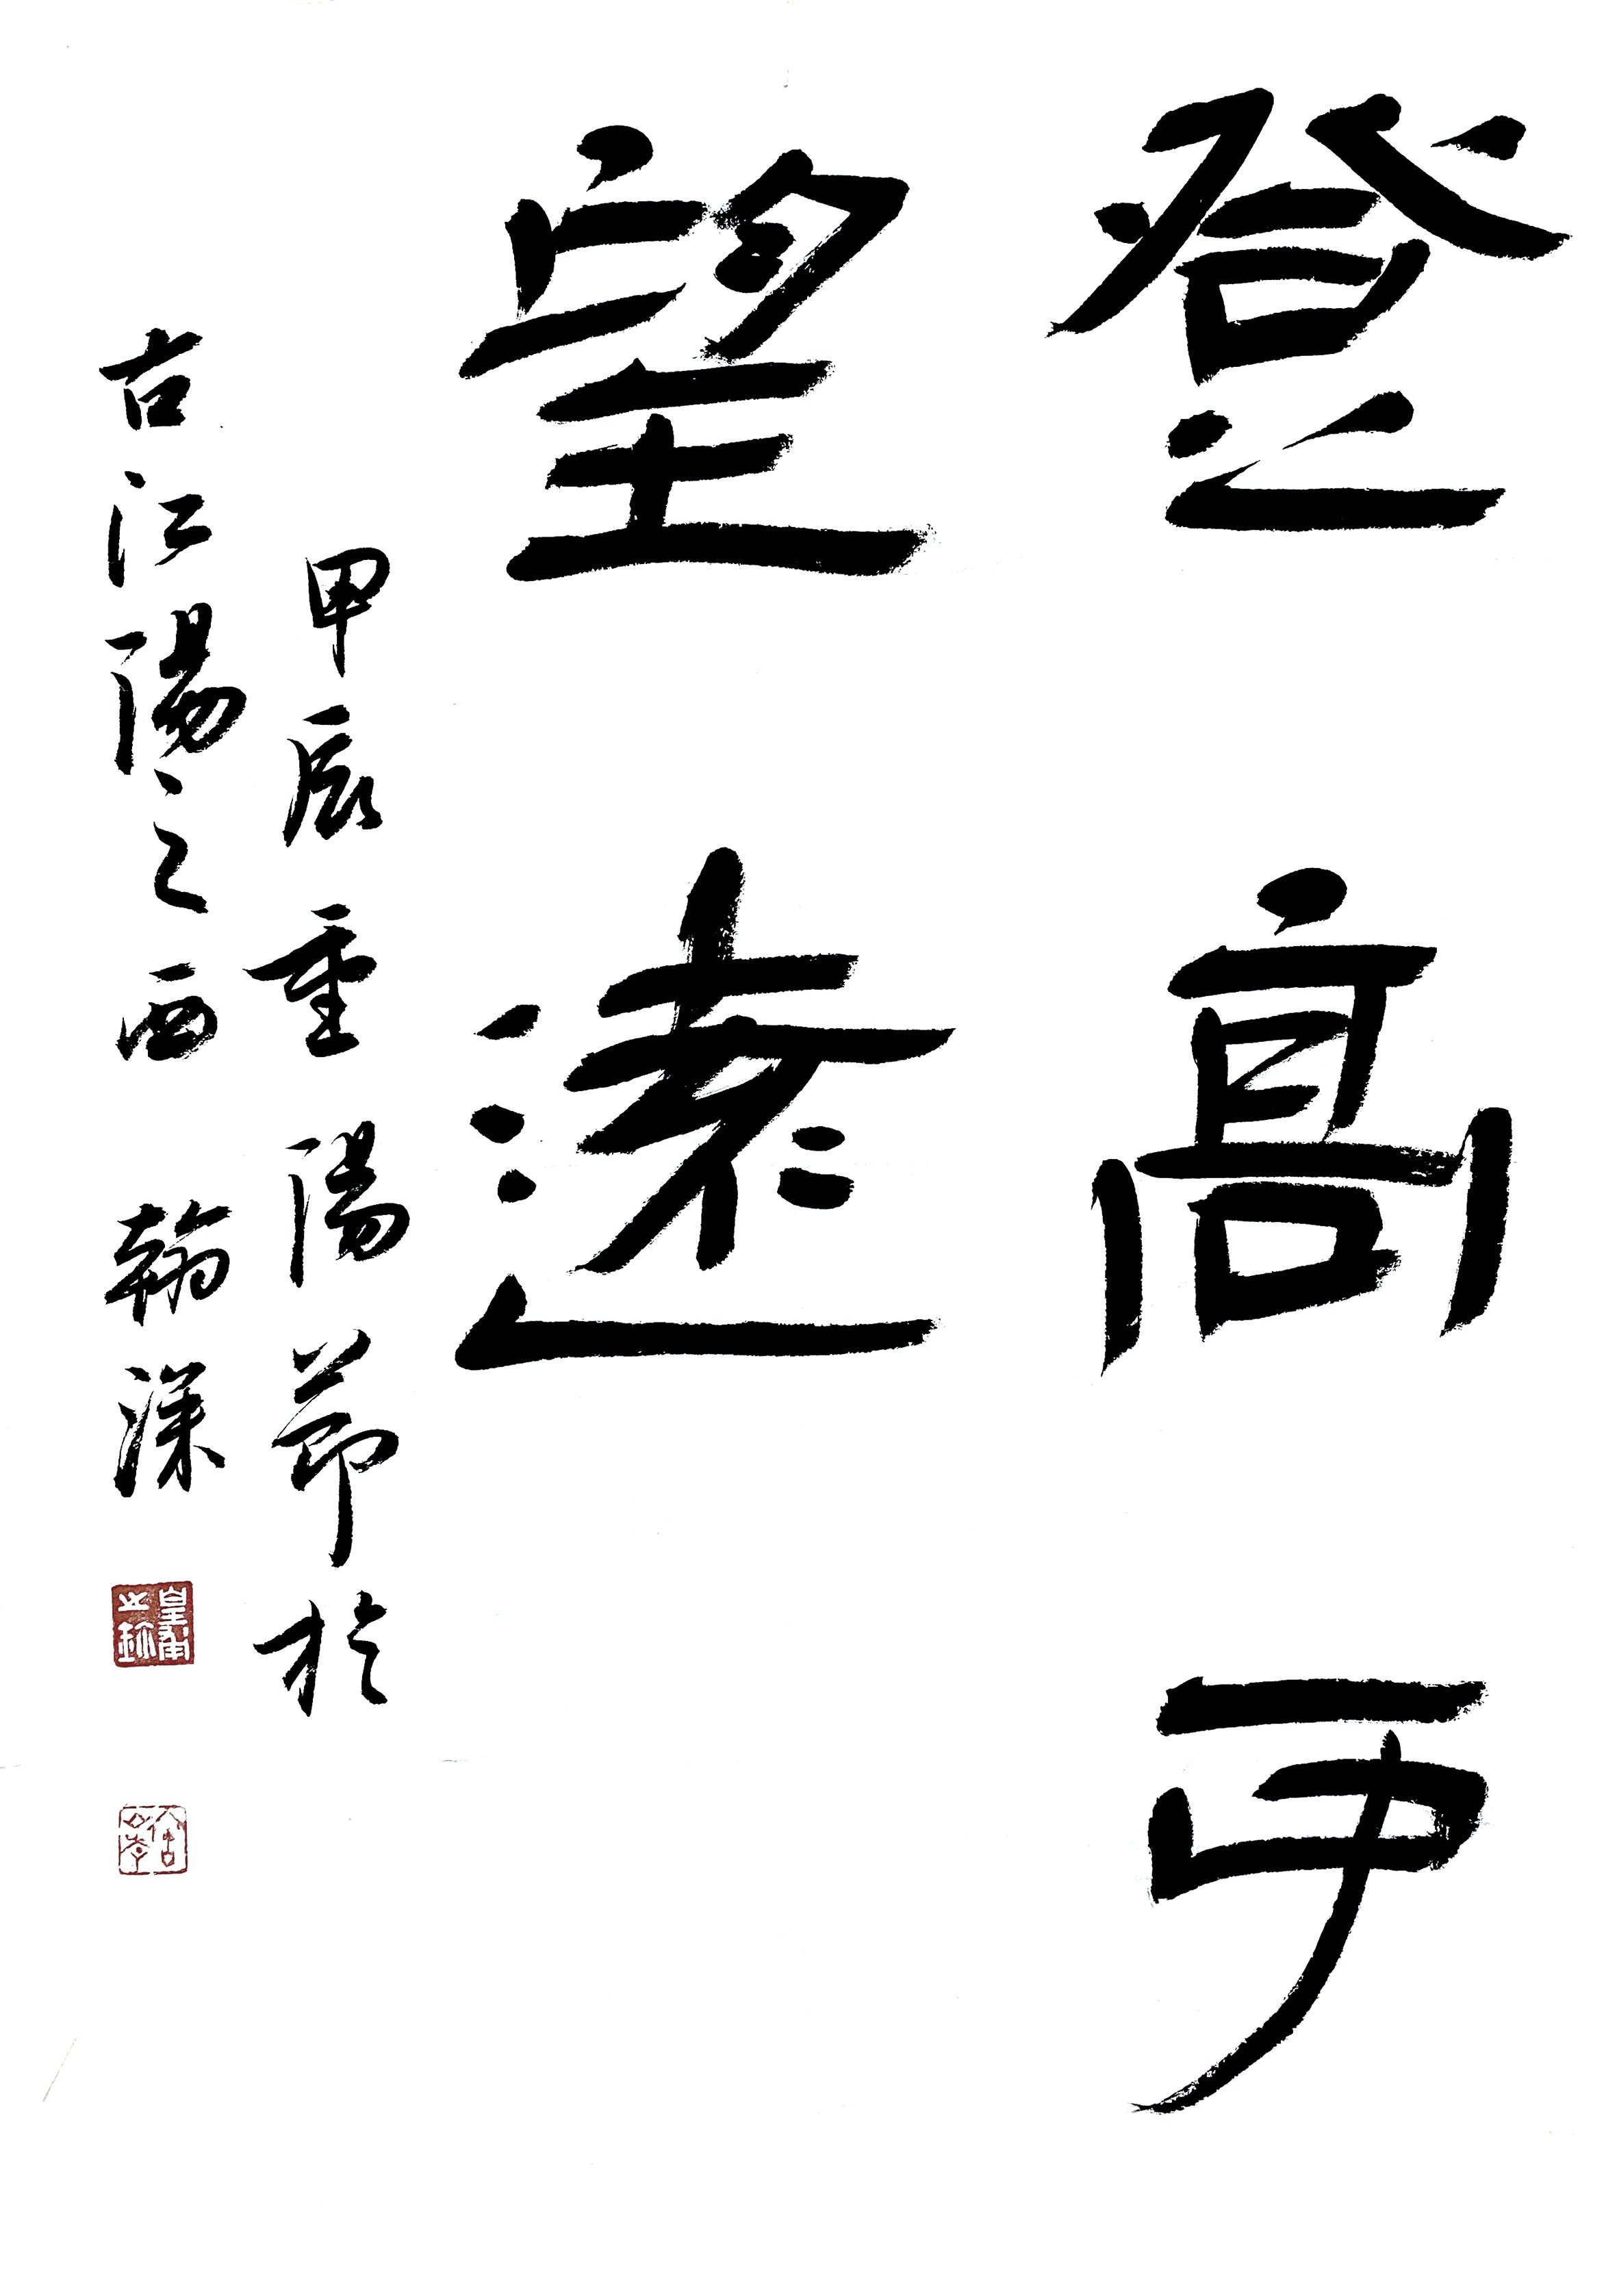 登高更
望遠
甲辰重陽節於
古江陽之西 翰深
皇甫之鉨